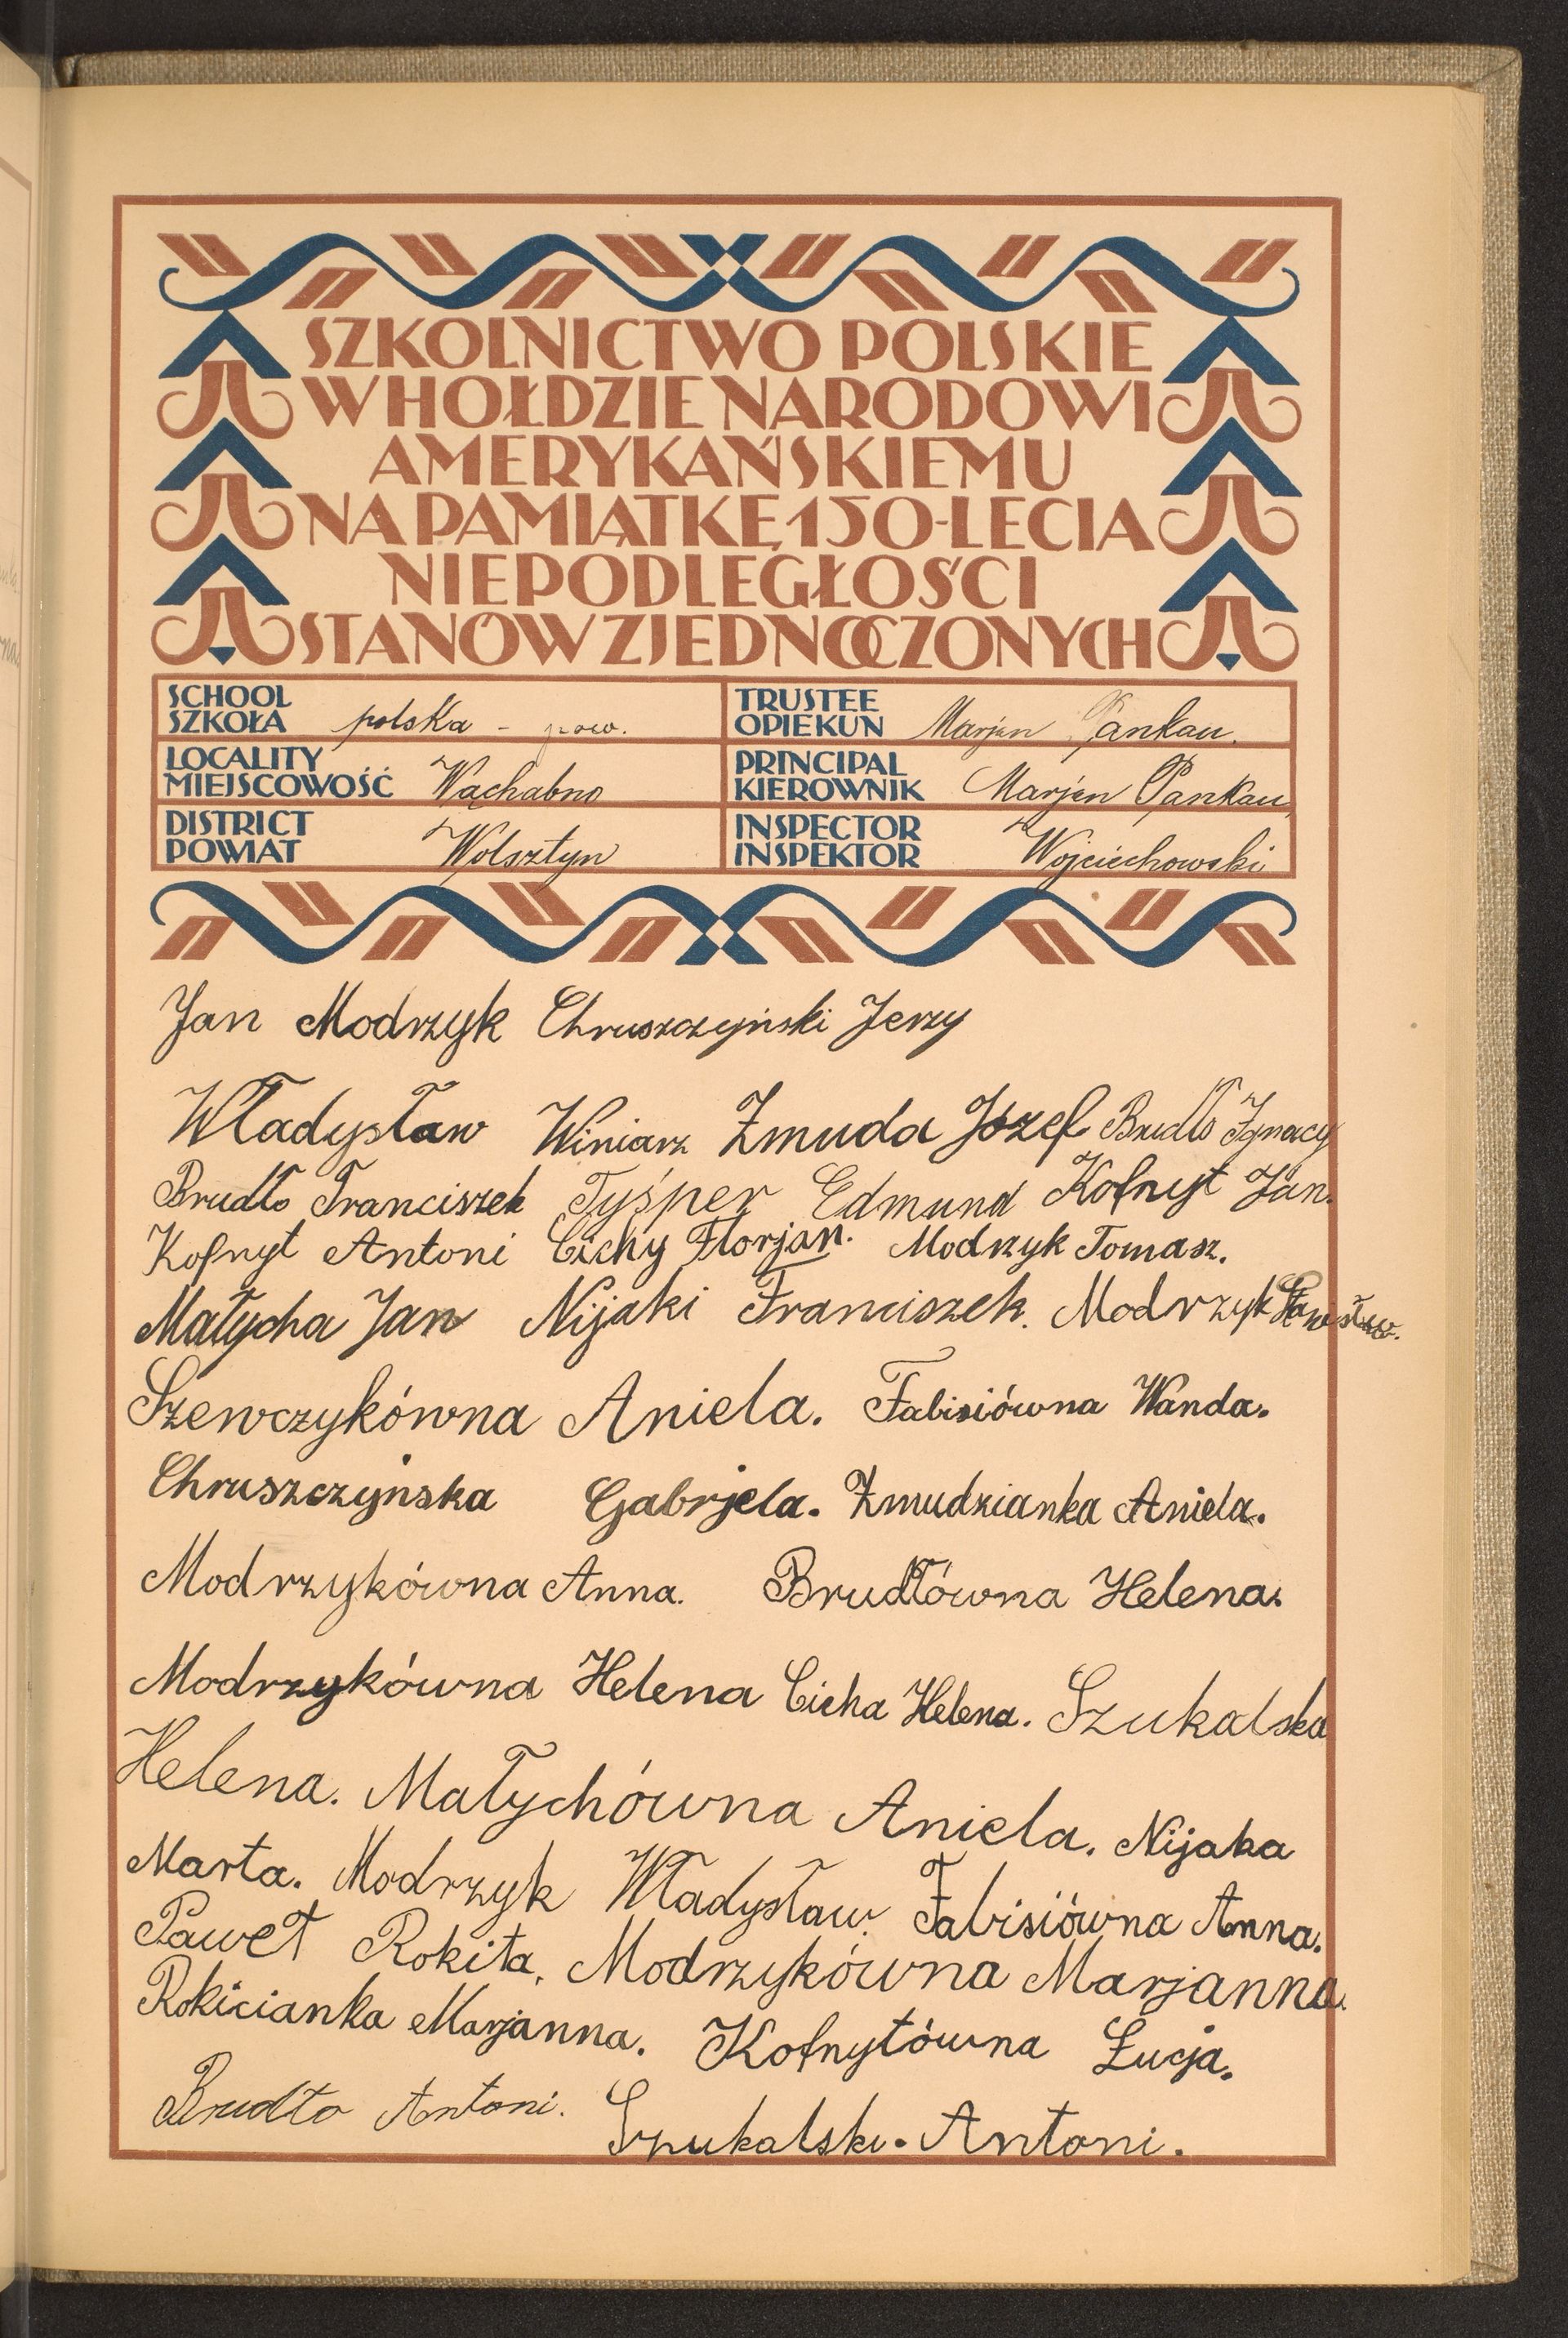 SZKOLNICTWO POLSKIE
W HOŁDZIE NARODOWI
AMERYKAŃSKIEMU
NA PAMIĄTKĘ 150-LECIA
NIEPODLEGŁOŚCI
STANÓW ZJEDNOCZONYCH
SCHOOL
SZKOŁA polska - pow.
TRUSTEE
OPIEKUN Marjan Pankau.
LOCALITY
MIEJSCOWOŚĆ Wąchabno
PRINCIPAL
KIEROWNIK Marjan Pankau
DISTRICT
POWIAT Wolsztyn
INSPECTOR
INSPEKTOR Wojciechowski
Jan Modrzyk Chruszczyński Jerzy
Władysław Winiarz Żmuda Józef Brudło Ignacy
Brudło Franciszek Tyśper Edmund Kofnyt Jan.
Kofnyt Antoni Cichy Florjan. Modrzyk Tomasz.
Małycha Jan Nijaki Franciszek. Modrzyk
Szewczykówna Aniela. Fabisiówna Wanda.
Chruszczyńska Gabrjela. Żmudzianka Aniela.
Modrzykówna Anna. Brudłówna Helena.
Modrzykówna Helena Cicha Helena. Szukalska
Helena. Małychówna Aniela. Nijaka
Marta. Modrzyk Władysław. Fabisiówna Anna.
Paweł Rokita. Modrzykówna Marjanna.
Rokicianka Marjanna. Kofnytówna Łucja.
Brudło Antoni. Szukalski. Antoni.